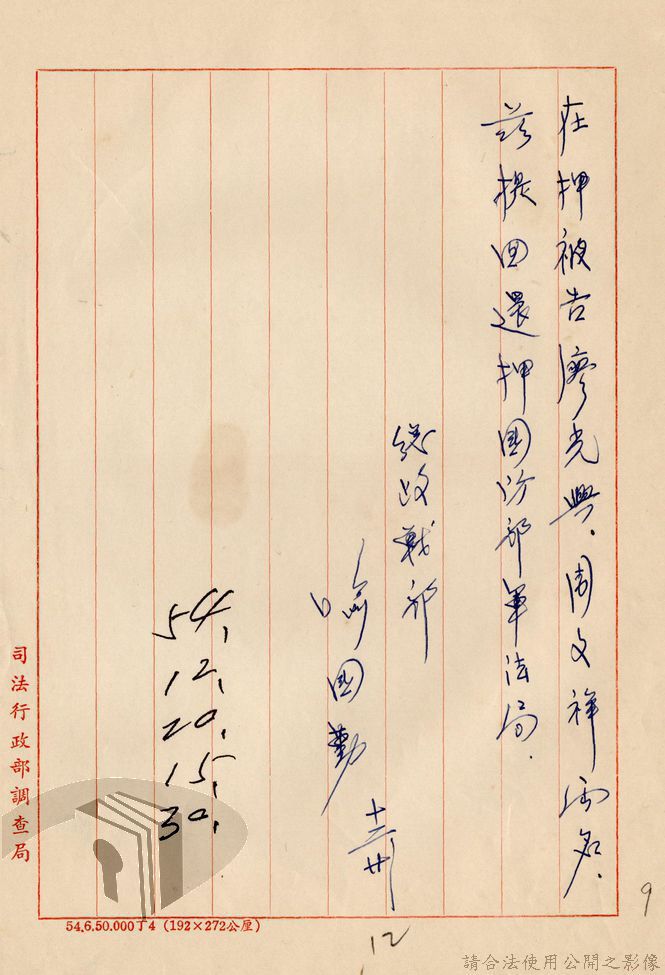 在押被告廖光興、周文祥兩名、
茲提回還押國防部軍法局.
總政戰部
喻國勤 十二廿
54,
12,
20,
15,
30,
司法行政部調查局
54.6.50.000丁4 (192×272公厘)
12
9
請合法使用公開之影像